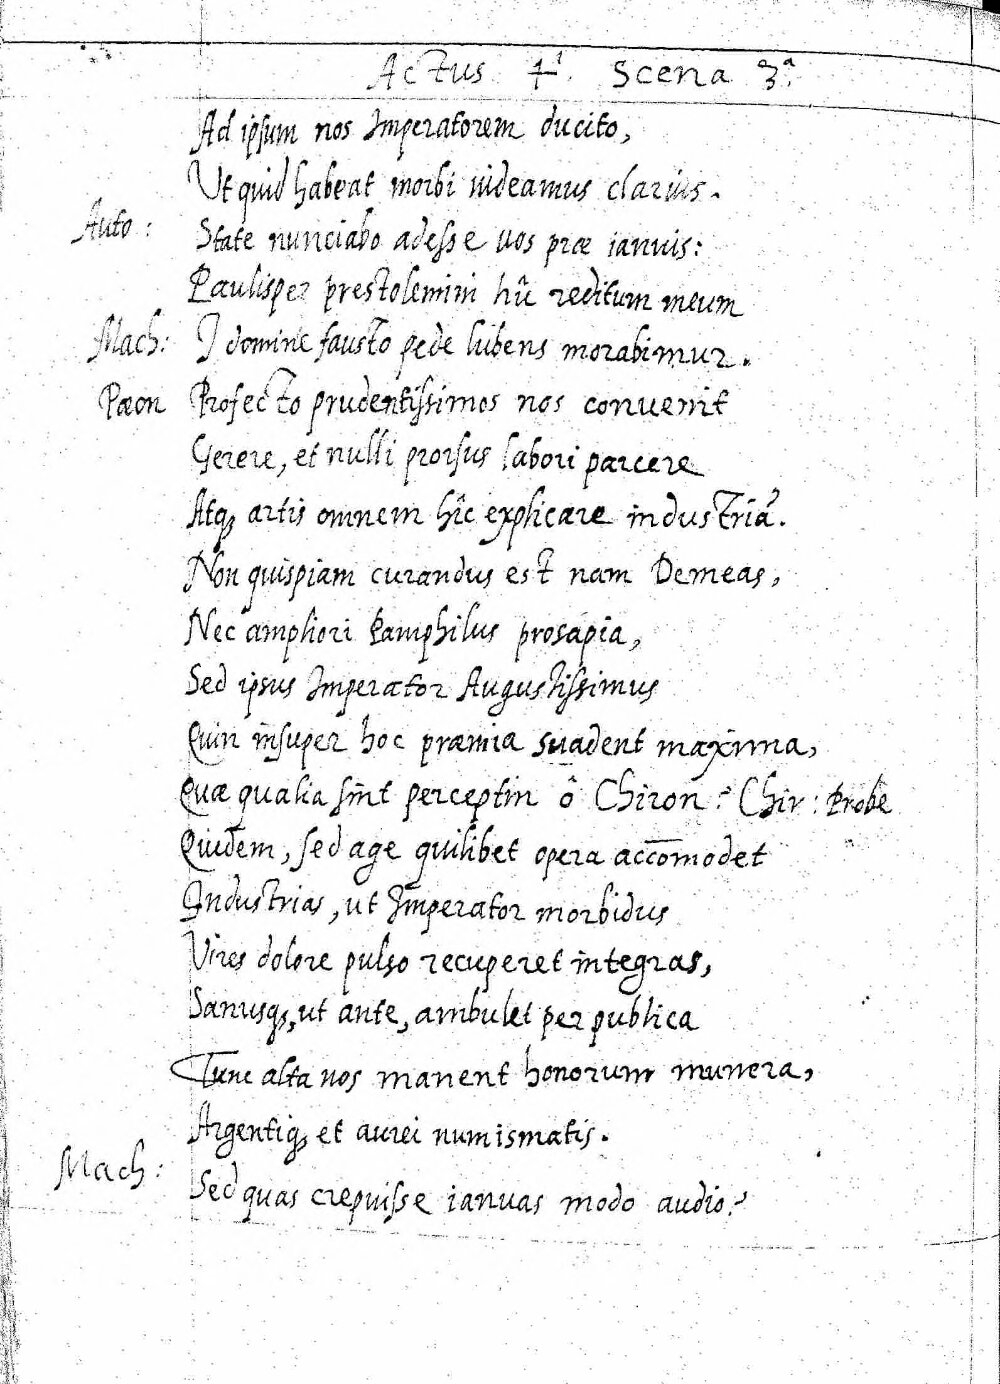 Actus 4ⁱ. Scena 3ᵃ.
Ad ipsum nos Imperatorem ducito,
Ut quid habeat morbi uideamus clarius.
Auto: State nunciabo adesse uos præ ianuis:
Paulisper prestolemini hîc reditum meum
Mach: I domine fausto pede lubens morabimur.
Pæon Profecto prudentissimos nos conuenit
Gerere, et nulli prorsus labori parcere
Atq; artis omnem hîc explicare industriã.
Non quispiam curandus est nam Demeas,
Nec ampliori Pamphilus prosapia,
Sed ipsus Imperator Augustissimus
Quin insuper hoc præmia suadent maxima,
Quæ qualia sint perceptin ô Chiron? Chir: Probe
Quidem, sed age quilibet opera accõmodet
Industrias, ut Imperator morbidus
Vires dolore pulso recuperet integras,
Sanusq; ut ante, ambulet per publica
Tunc alta nos manent honorum munera,
Argentiq; et aurei numismatis.
Mach: Sed quas crepuisse ianuas modo audio?